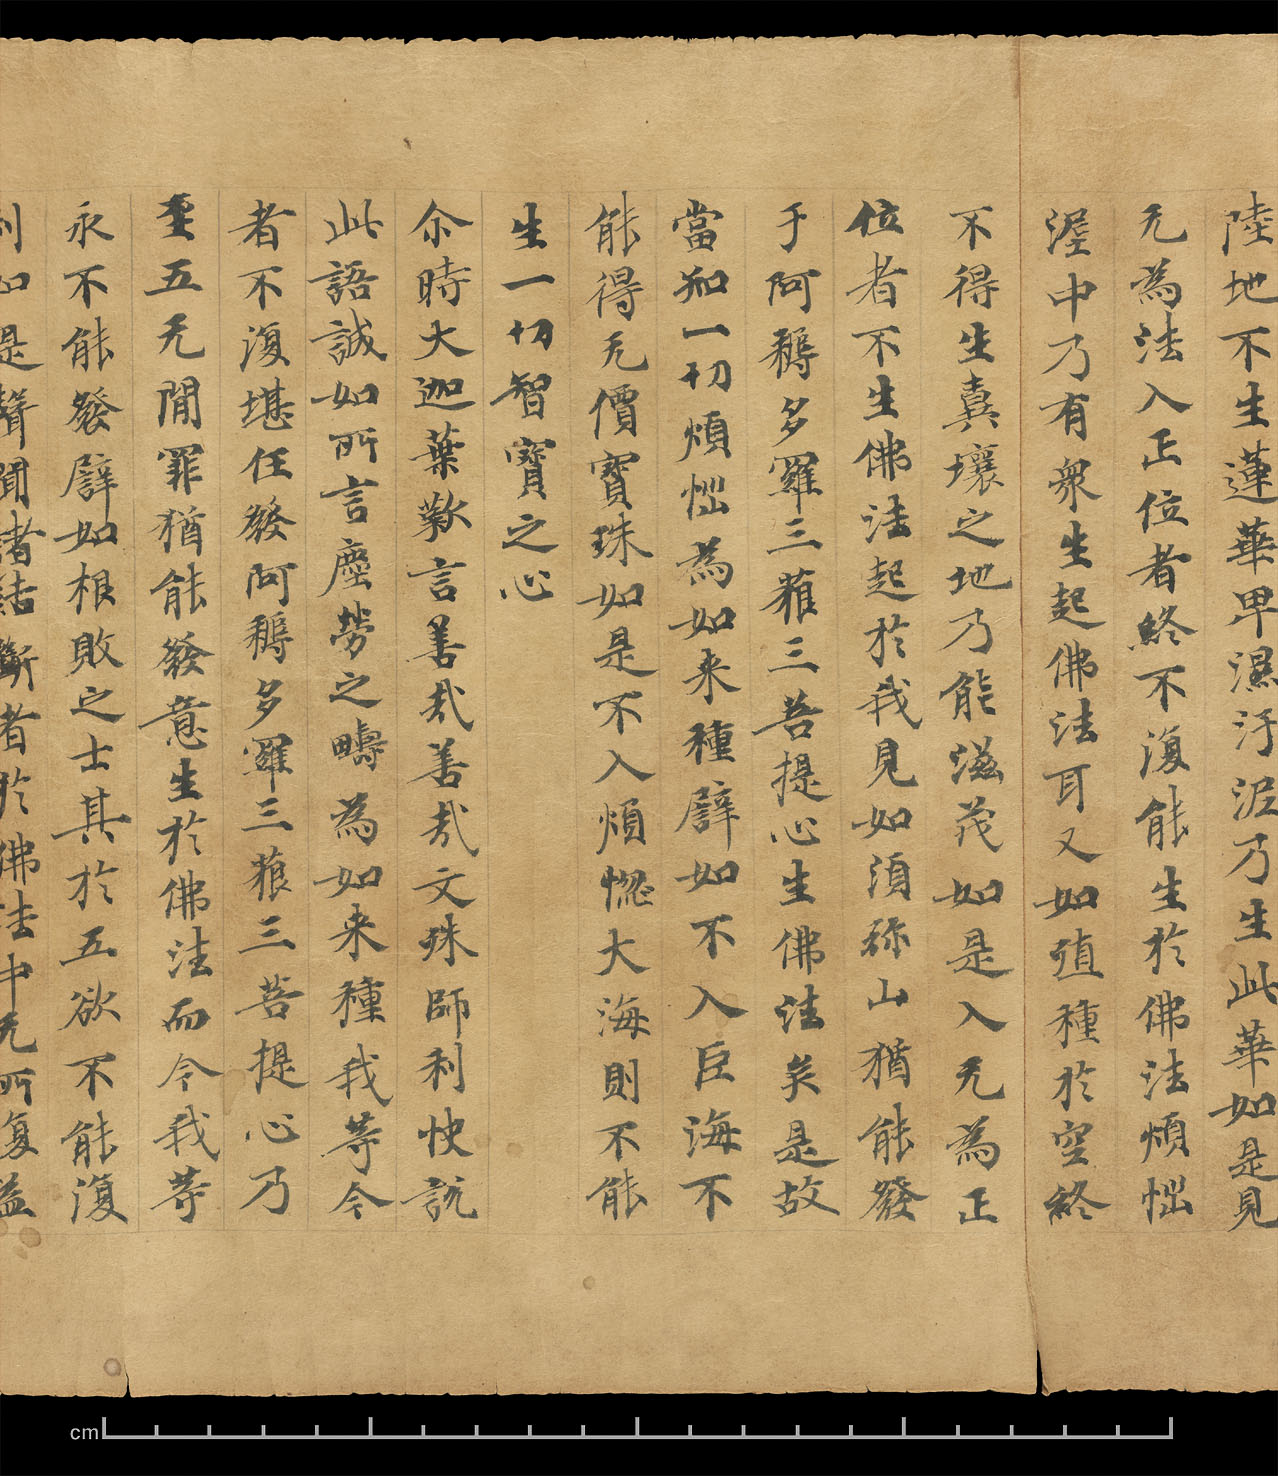 陸地不生蓮華卑濕汙泥乃生此華如是見
无為法入正位者終不復能生於佛法煩惱
渥中乃有衆生起佛法耳又如殖種於空終
不得生糞壤之地乃能滋茂如是入无為正
位者不生佛法起於我見如湏弥山猶能發
于阿耨多羅三藐三菩提心生佛法矣是故
當知一切煩惱為如来種譬如不入巨海不
能得无價寶珠如是不入煩惱大海則不能
生一切智寶之心
尒時大迦葉歎言善哉善哉文殊師利快說
此語誠如所言塵勞之疇為如来種我等今
者不復堪任發阿耨多羅三藐三菩提心乃
至五无閒罪猶能發意生於佛法而今我等
永不能發譬如根敗之士其於五欲不能復
利如是聲聞諸結斷者於佛法中无所復益
cm